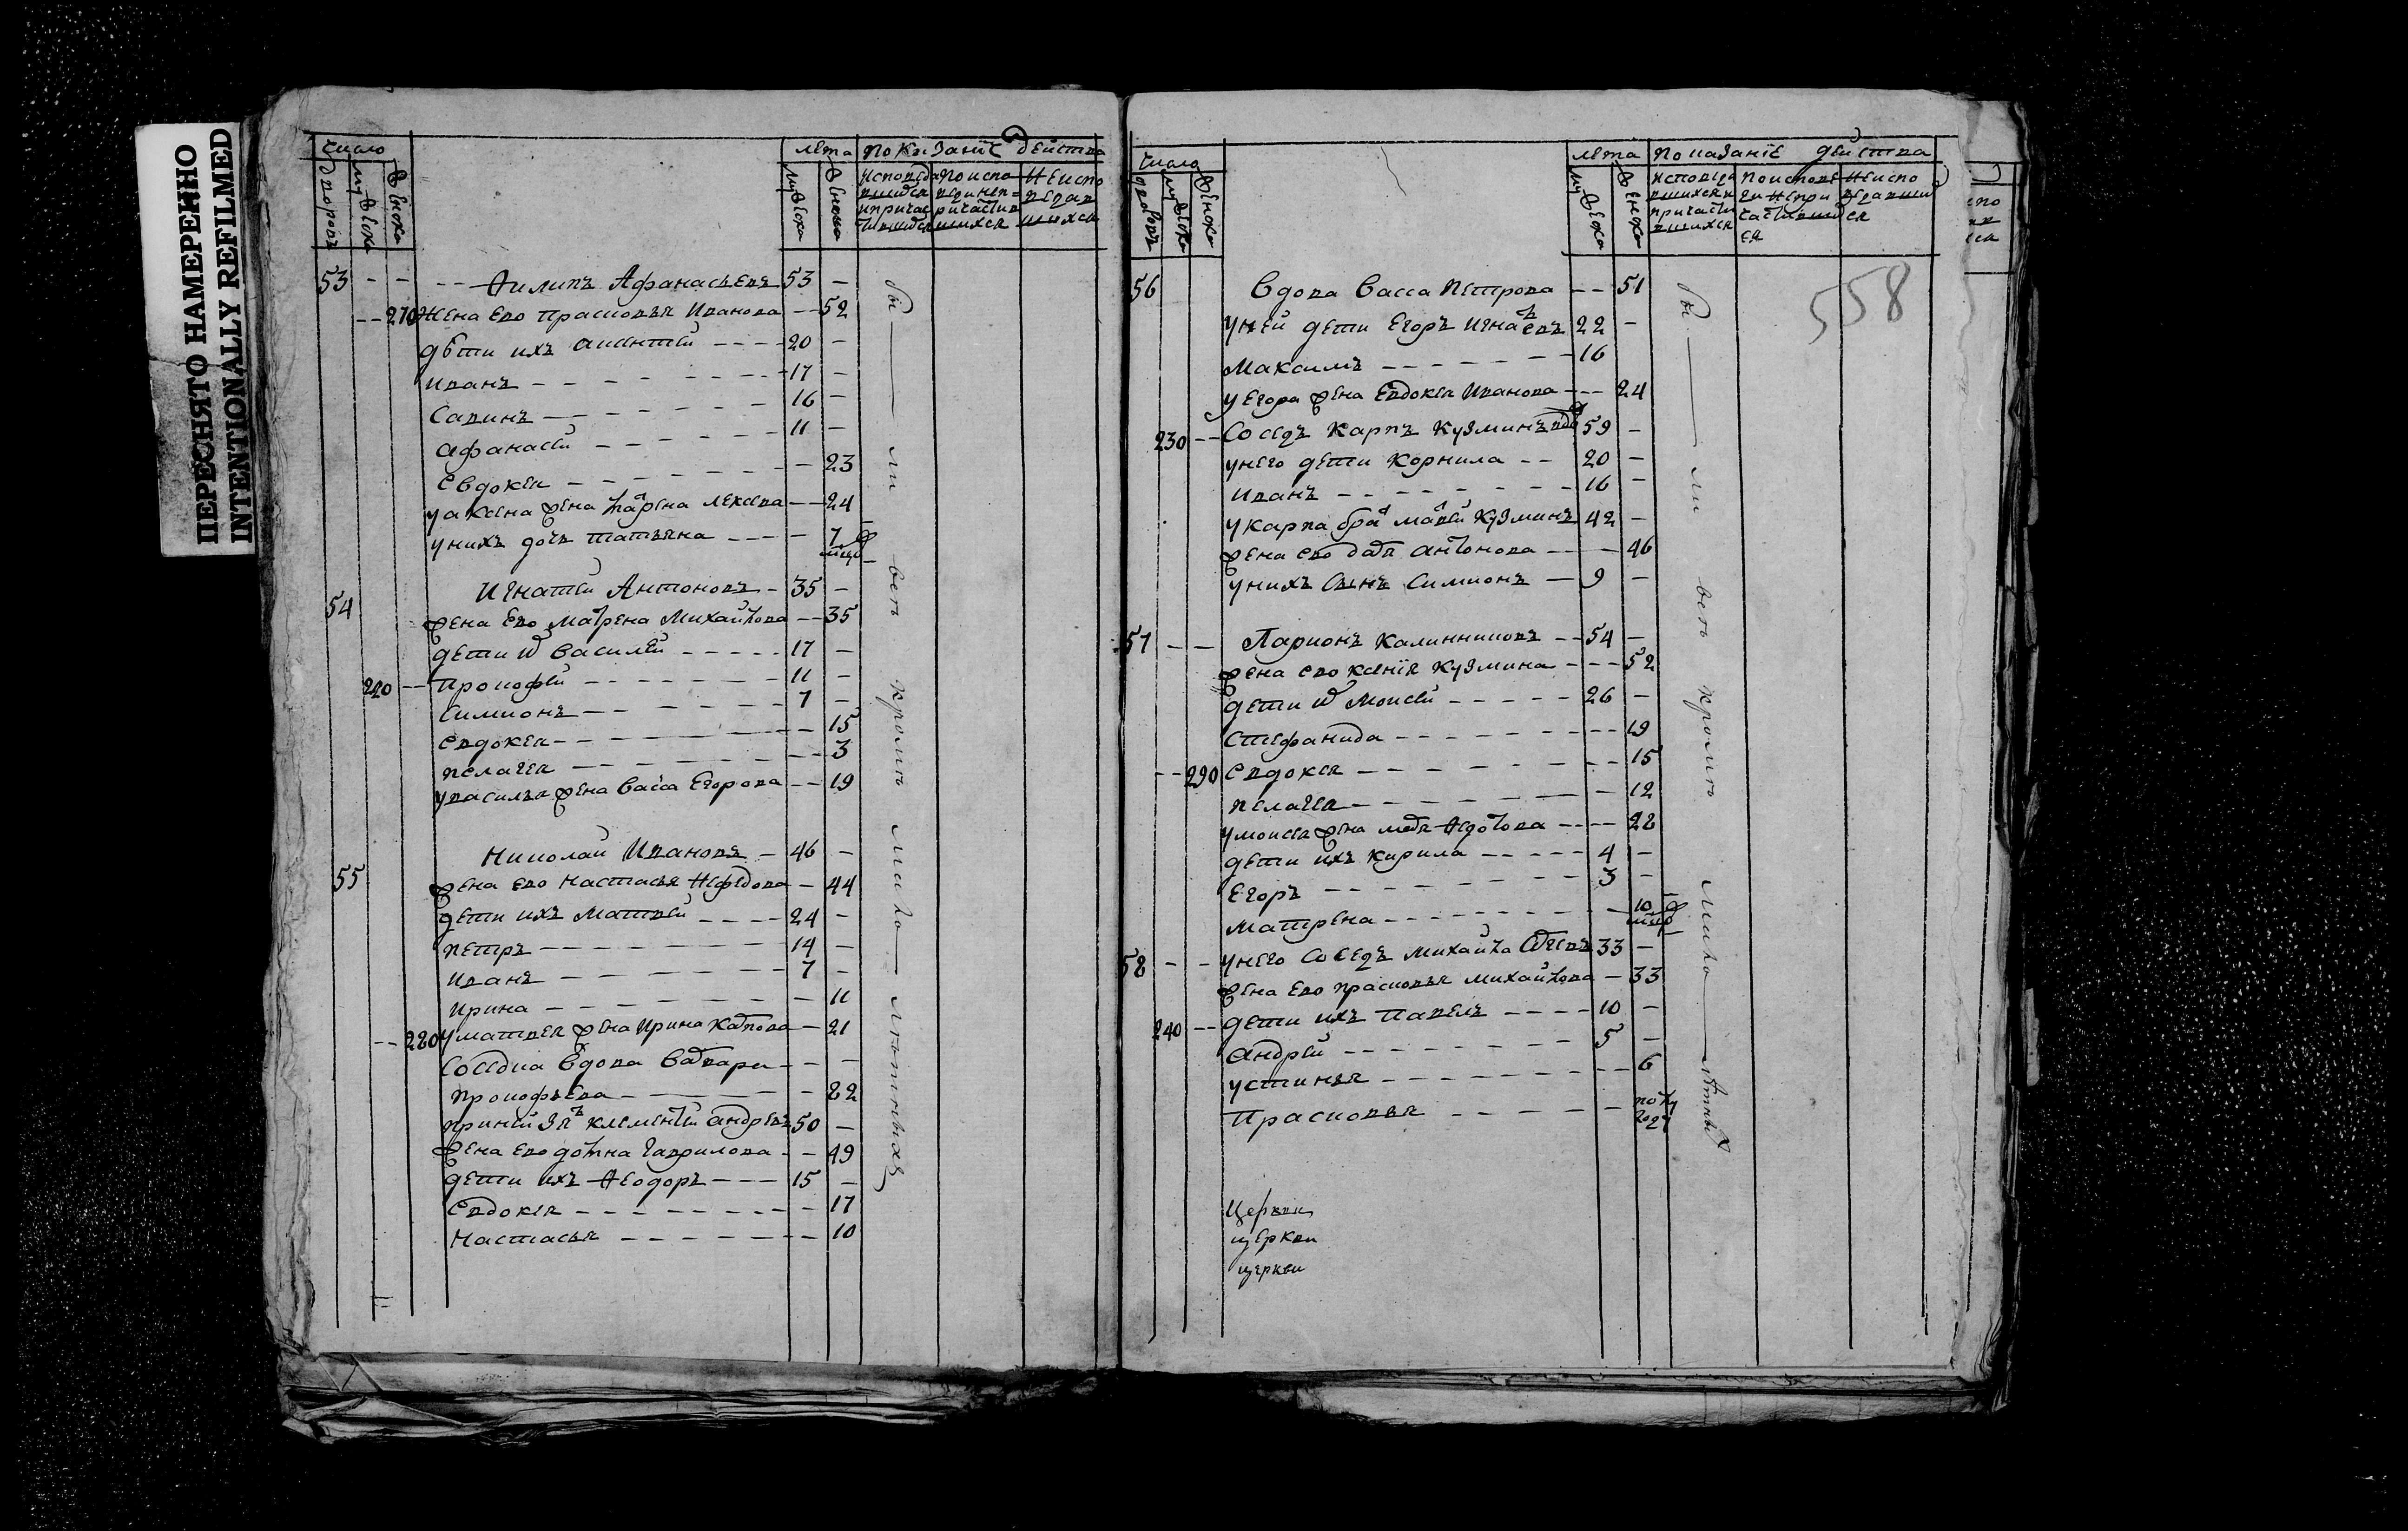 ПЕРЕСНЯТО НАМЕРЕННО
INTENTIONALLY REFILMED
число
дворовъ
муска
женска
лѣта
муска
женска
показаніе действа
исповедавшихся и причастившихся
по исповеди не причастившихся
не исповедавшихся
53 - - -- Филипъ Афанасьевъ 53 -
-- 270 Жена ево Прасковья Иванова -- 52
дѣти ихъ Аксентей ---- 20 -
Иванъ 17 -
Савинъ 16 -
Афанасей 11 -
Евдокея - 23
у Аксена жена Матрена Лексева -- 24
у нихъ дочь Татьяна - 7 мцо
54 Игнатей Антоновъ - 35 -
жена ево Матрена Михайлова -- 35
дети их Василей 17 -
220 -- Прокофей 11 -
Симионъ 7 -
Евдокея - 15
Пелагея -- 3
у Василья жена Васса Егорова -- 19
55 Николай Ивановъ - 46 -
жена ево Настасья Нефедова - 44
дети ихъ Матвей ---- 24 -
Петръ 14 -
Иванъ 7 -
Ирина - 11
-- 280 у Матвея жена Ирина Карпова - 21
Соседка вдова Варвара - -
Прокофьева - 82
при ней зять Клементей Андревъ 50 -
жена ево Гаврилова - - 49
дети ихъ Феодоръ --- 15 -
Евдокея - 17
Настасья - 10
бы ли веть кроме мало летныхъ
число
дворовъ
муска
женска
лета
муска
женска
показаніе действа
исповедавшихся и причастившихся
по исповеди не причастившися
не исповедавшися
558
56 Вдова Васса Петрова -- 51
у ней дети Егоръ Игнатьевъ 22 -
Максимъ 16
у Егора жена Евдокея Иванова --- 24
230 -- Соседъ Карпъ Кузминъ вдов 59 -
у него дети Корнила -- 20 -
Иванъ 16 -
у Карпа братъ Матвей Кузминъ 42 -
жена ево Дарья Антонова -- - 46
у нихъ сынъ Симионъ - 9 -
57 - - Ларионъ Калинниковъ -- 54 -
жена ево Ксения Кузмина --- 52
дети их Моисей 26 -
Стефанида -- 19
-- 290 Евдокея -- 15
Пелагея - 12
у Моисея жена Федотова ---- 22
дети ихъ Кирила 4 -
Егоръ 3 -
Матрена - 10 мцо
58 - - у него соседъ Михайла 33 -
жена ево Прасковья Михайлова - 33
240 -- дети ихъ Павелъ ---- 10 -
Андрей 5 -
Устинья -- 6
Прасковья - полу году
бы ли веть кроме мало летныхъ
Церкви
церкви
церкви